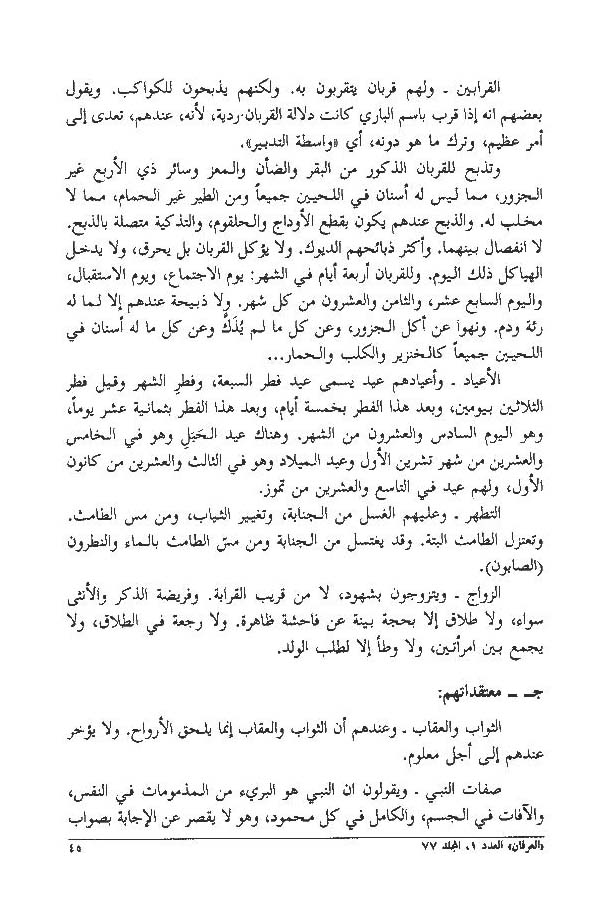 القرابين ـ ولهم قربان يتقربون به. ولكنهم يذبحون للكواكب. ويقول
بعضهم انه إذا قرب باسم الباري كانت دلالة القربان ردية، لأنه، عندهم، تعدى إلى
أمر عظيم، وترك ما هو دونه، أي «واسطة التدبير».
وتذبح للقربان الذكور من البقر والضأن والمعز وسائر ذي الأربع غير
الجزور، مما ليس له أسنان في اللحيين جميعاً ومن الطير غير الحمام، مما لا
مخلب له. والذبح عندهم يكون بقطع الأوداج والحلقوم، والتذكية متصلة بالذبح.
لا انفصال بينهما. وأكثر ذبائحهم الديوك. ولا يؤكل القربان بل يحرق، ولا يدخل
الهياكل ذلك اليوم. وللقربان أربعة أيام في الشهر: يوم الاجتماع، ويوم الاستقبال،
واليوم السابع عشر، والثامن والعشرون من كل شهر. ولا ذبيحة عندهم إلا لما له
رئة ودم. ونهوا عن أكل الجزور، وعن كل ما لم يُذَكَّ وعن كل ما له أسنان في
اللحيين جميعاً كالخنزير والكلب والحمار...
الأعياد ـ وأعيادهم عيد يسمى عيد فطر السبعة، وفطر الشهر وقبل فطر
الثلاثين بيومين، وبعد هذا الفطر بخمسة أيام، وبعد هذا الفطر بثمانية عشر يوماً،
وهو اليوم السادس والعشرون من الشهر. وهناك عيد الحَبَلِ وهو في الخامس
والعشرين من شهر تشرين الأول وعيد الميلاد وهو في الثالث والعشرين من كانون
الأول، ولهم عيد في التاسع والعشرين من تموز.
التطهر ـ وعليهم الغسل من الجنابة، وتغيير الثياب، ومن مس الطامث.
وتعتزل الطامث البتة. وقد يغتسل من الجنابة ومن مسّ الطامث بالماء والنطرون
(الصابون).
الزواج ـ ويتزوجون بشهود، لا من قريب القرابة. وفريضة الذكر والأنثى
سواء، ولا طلاق إلا بحجة بينة عن فاحشة ظاهرة. ولا رجعة في الطلاق، ولا
يجمع بين امرأتين، ولا وطأ إلا لطلب الولد.
جـ ـ معتقداتهم:
الثواب والعقاب ـ وعندهم أن الثواب والعقاب إنما يلحق الأرواح. ولا يؤخر
عندهم إلى أجل معلوم.
صفات النبي ـ ويقولون ان النبي هو البريء من المذمومات في النفس،
والآفات في الجسم، والكامل في كل محمود، وهو لا يقصر عن الإجابة بصواب
«العرفان» العدد ١، المجلد ٧٧
٤٥